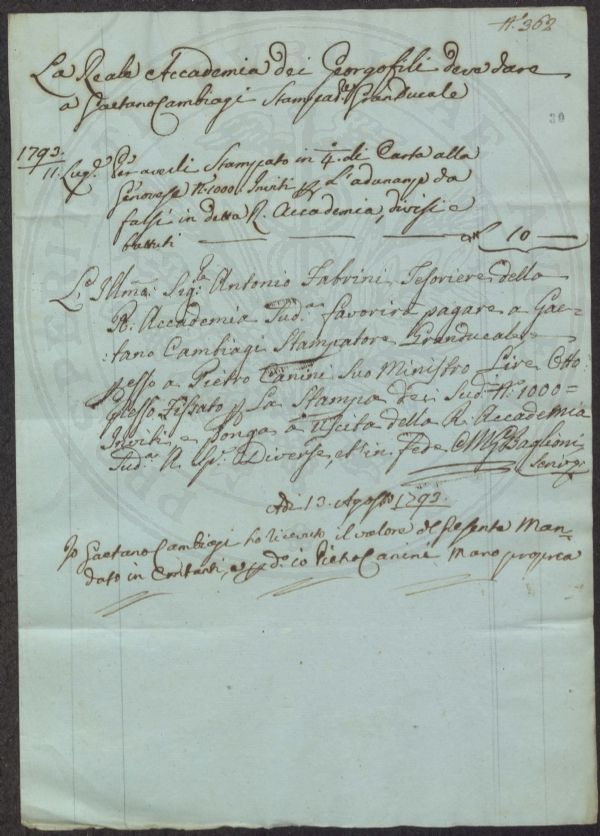 N.° 362
La Reale Accademia dei Georgofili deve dare
a Gaetano Cambiagi Stampat.re Granducale
30
1793.
11. Lug.° Per averli Stampato in 4.° di Carta alla
Genovese N.° 1000. Inviti p L'adunanze da
farsi in detta R. Accademia, divisi e
battuti — — — 10 —
L'Illmo: Sig.r Antonio Fabrini Tesoriere della
R. Accademia Sud.a favorirà pagare a Gae-
tano Cambiagi Stampatore Granducale
p esso a Pietro Canini Suo Ministro Lire Otto
Prezzo Fissato p La Stampa dei Sud.i N.° 1000=
Inviti e ponga a Uscita della R. Accademia
Sud.a Sp.e Diverse, et in Fede Baglioni
Adi 13. Agosto 1793.
Io Gaetano Cambiagi ho ricevuto il valore del presente Man-
dato in Contanti, e p d.° io Pietro Canini Mano propria